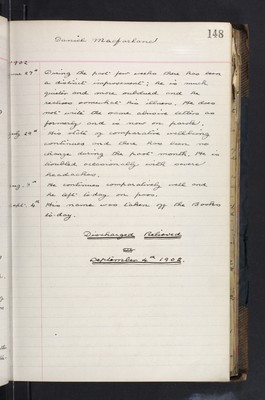 148
Daniel Macfarland
1902
June 23rd During the past few weeks there has been
a distinct improvement; he is much
quieter and more subdued and he
realises somewhat his illness. He does
not write the same abusive letters as
formerly and is now on parole.
July 29th His state of comparative wellbeing
continues and there has been no
change during the past month. He is
troubled occasionally with severe
headaches.
Aug. 7th He continues comparatively well and
he left to-day on pass.
Sept. 4th His name was taken off the Books
to-day.
Discharged Relieved
on
September 4th 1902.